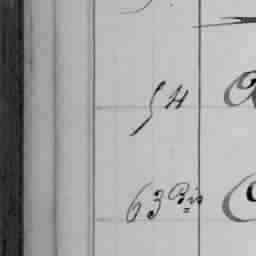 54
63 Bis